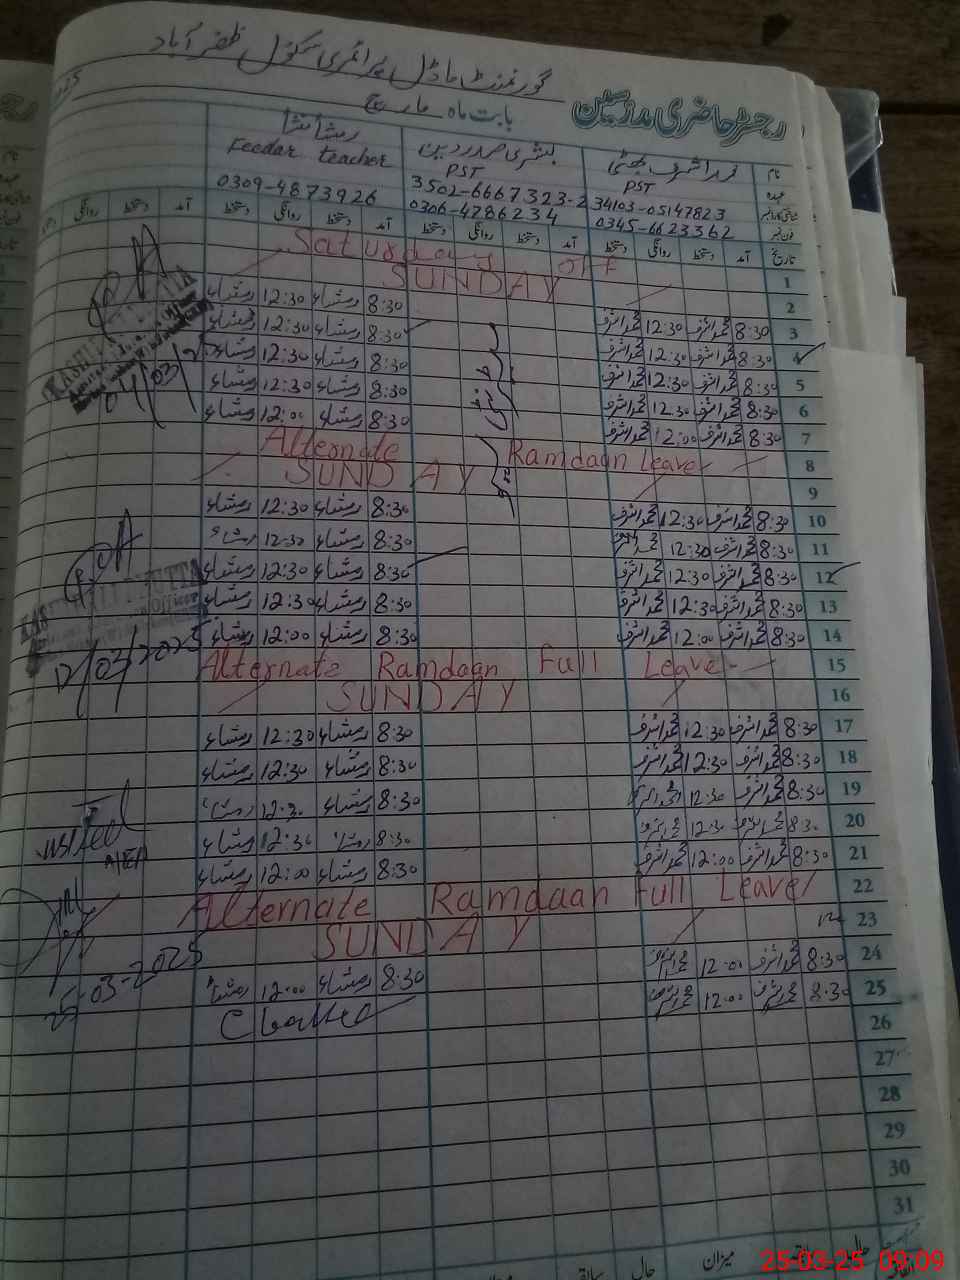 گورنمنٹ ماڈل پرائمری سکول ظفر آباد
رجسٹر حاضری مدرسین
بابت ماہ مارچ
نام
محمد اشرف بھٹی
بشریٰ صدردین
رمشا
عہدہ
PST
PST
Feedar teacher
34103-05147823
3502-6667323-2
فون نمبر
0345-6623362
0306-4786234
0309-4873926
تاریخ آمد دستخط روانگی دستخط آمد دستخط روانگی دستخط آمد دستخط روانگی دستخط آمد دستخط روانگی
1 Saturday off
2 SUNDAY
3 8:30 محمد اشرف 12:30 محمد اشرف 8:30 رمشاء 12:30 رمشاء
4 8:30 محمد اشرف 12:30 محمد اشرف 8:30 رمشاء 12:30 رمشاء
5 8:30 محمد اشرف 12:30 محمد اشرف 8:30 رمشاء 12:30 رمشاء
6 8:30 محمد اشرف 12:30 محمد اشرف 8:30 رمشاء 12:30 رمشاء
7 8:30 محمد اشرف 12:00 محمد اشرف 8:30 رمشاء 12:00 رمشاء
04/03/2
8 Alternate Ramdaan Leave
9 SUNDAY
10 8:30 محمد اشرف 12:30 محمد اشرف 8:30 رمشاء 12:30 رمشاء
11 8:30 محمد اشرف 12:30 8:30 رمشاء 12:30 رمشاء
12 8:30 محمد اشرف 12:30 محمد اشرف 8:30 رمشاء 12:30 رمشاء
13 8:30 محمد اشرف 12:30 محمد اشرف 8:30 رمشاء 12:30 رمشاء
14 8:30 محمد اشرف 12:00 محمد اشرف 8:30 رمشاء 12:00 رمشاء
12/03/2025
15 Alternate Ramdaan Full Leave
16 SUNDAY
17 8:30 محمد اشرف 12:30 محمد اشرف 8:30 رمشاء 12:30 رمشاء
18 8:30 محمد اشرف 12:30 محمد اشرف 8:30 رمشاء 12:30 رمشاء
19 8:30 محمد اشرف 12:30 8:30 رمشاء 12:30
20 8:30 محمد اشرف 12:30 8:30 رمشاء 12:30 رمشاء
21 8:30 محمد اشرف 12:00 محمد اشرف 8:30 رمشاء 12:00 رمشاء
visited
AEO
22 Alternate Ramdaan Full Leave
23 SUNDAY
24 8:30 محمد اشرف 12:00 8:30 رمشاء 12:00 رمشاء
25 8:30 محمد اشرف 12:00
25-03-2025
26
27
28
29
30
31
میزان
حال
سابقہ
25-03-25 09:09